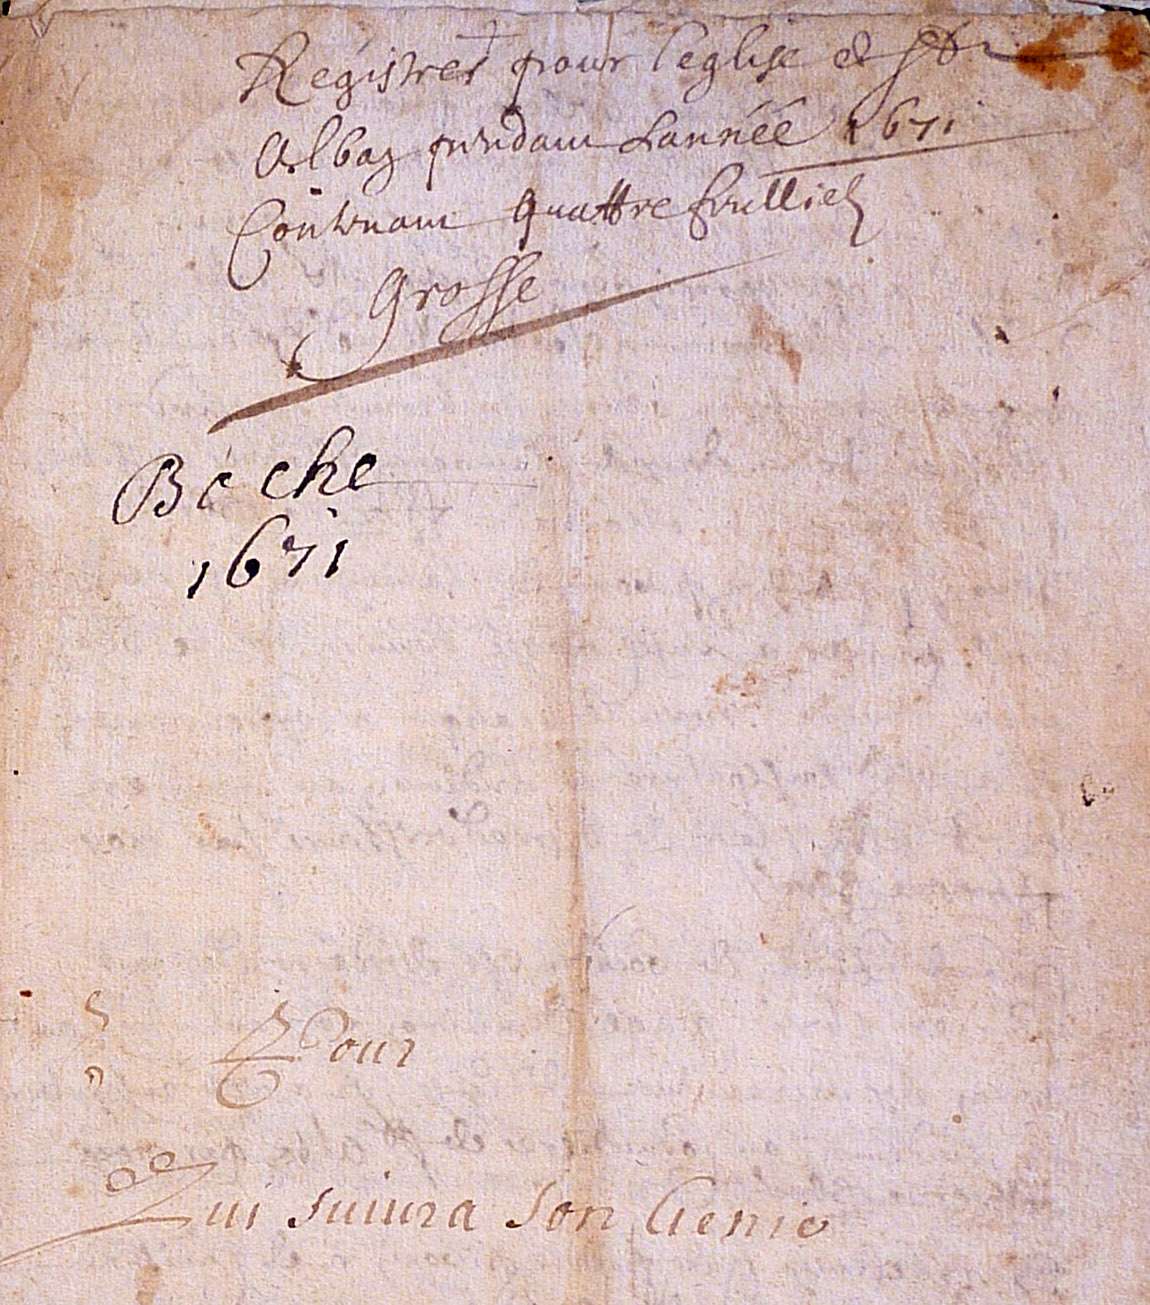 Régistres pour l'eglise de St
Albag pendant Lannéé 1671
Contenant quattre feullietz
Grosse
Béche
1671
Pour
Qui suiura son Genie